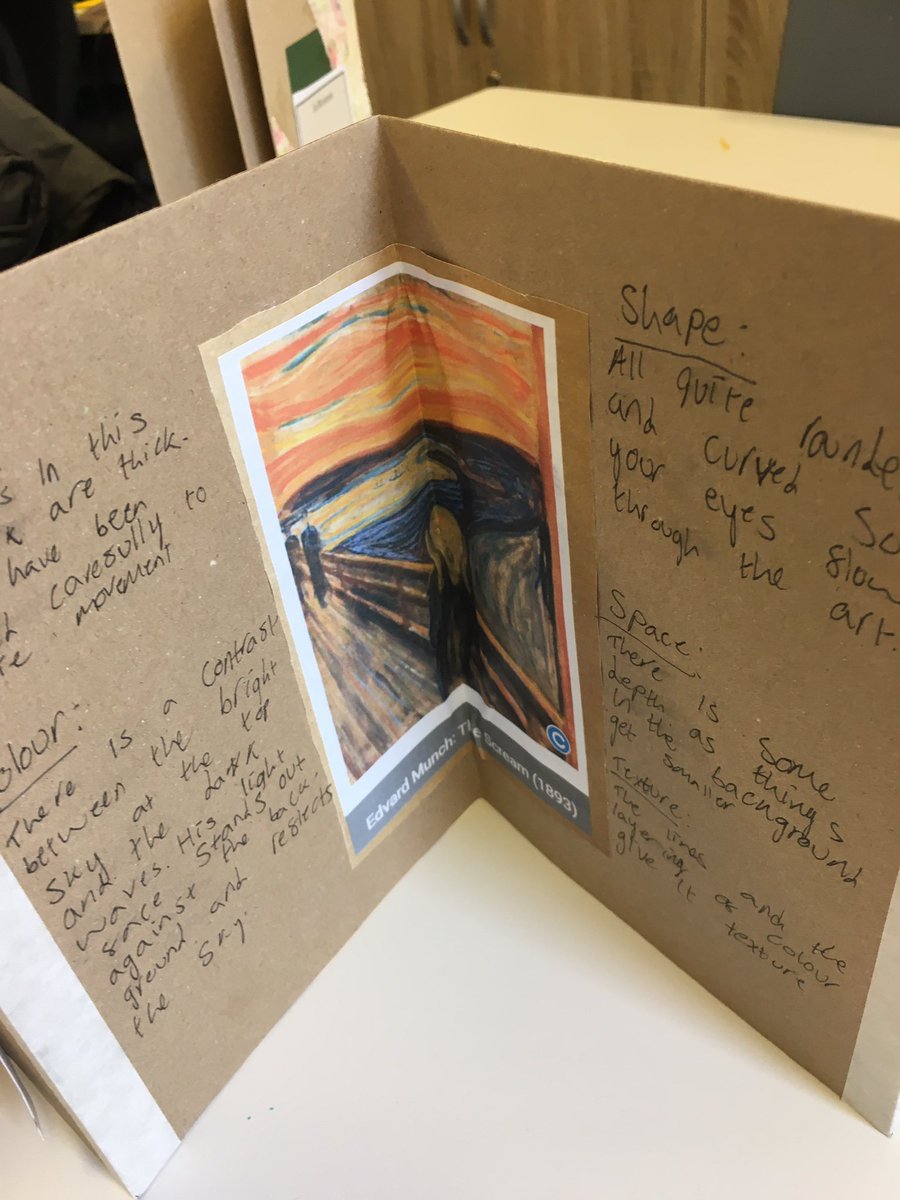 s in this
are thick.
have been
carefully to
movement
olour:
There is a contrast
between the bright
sky at the top
and the dark
waves. His light
face stands out
against the back-
ground and reflects
the sky.
Edvard Munch: The Scream (1893)
C
Shape:
All quite rounde
and curved so
your eyes flow
through the art.
Space:
There is some
depth as things
in the background
get smaller
Texture:
The lines and the
layering of colour
give it a texture